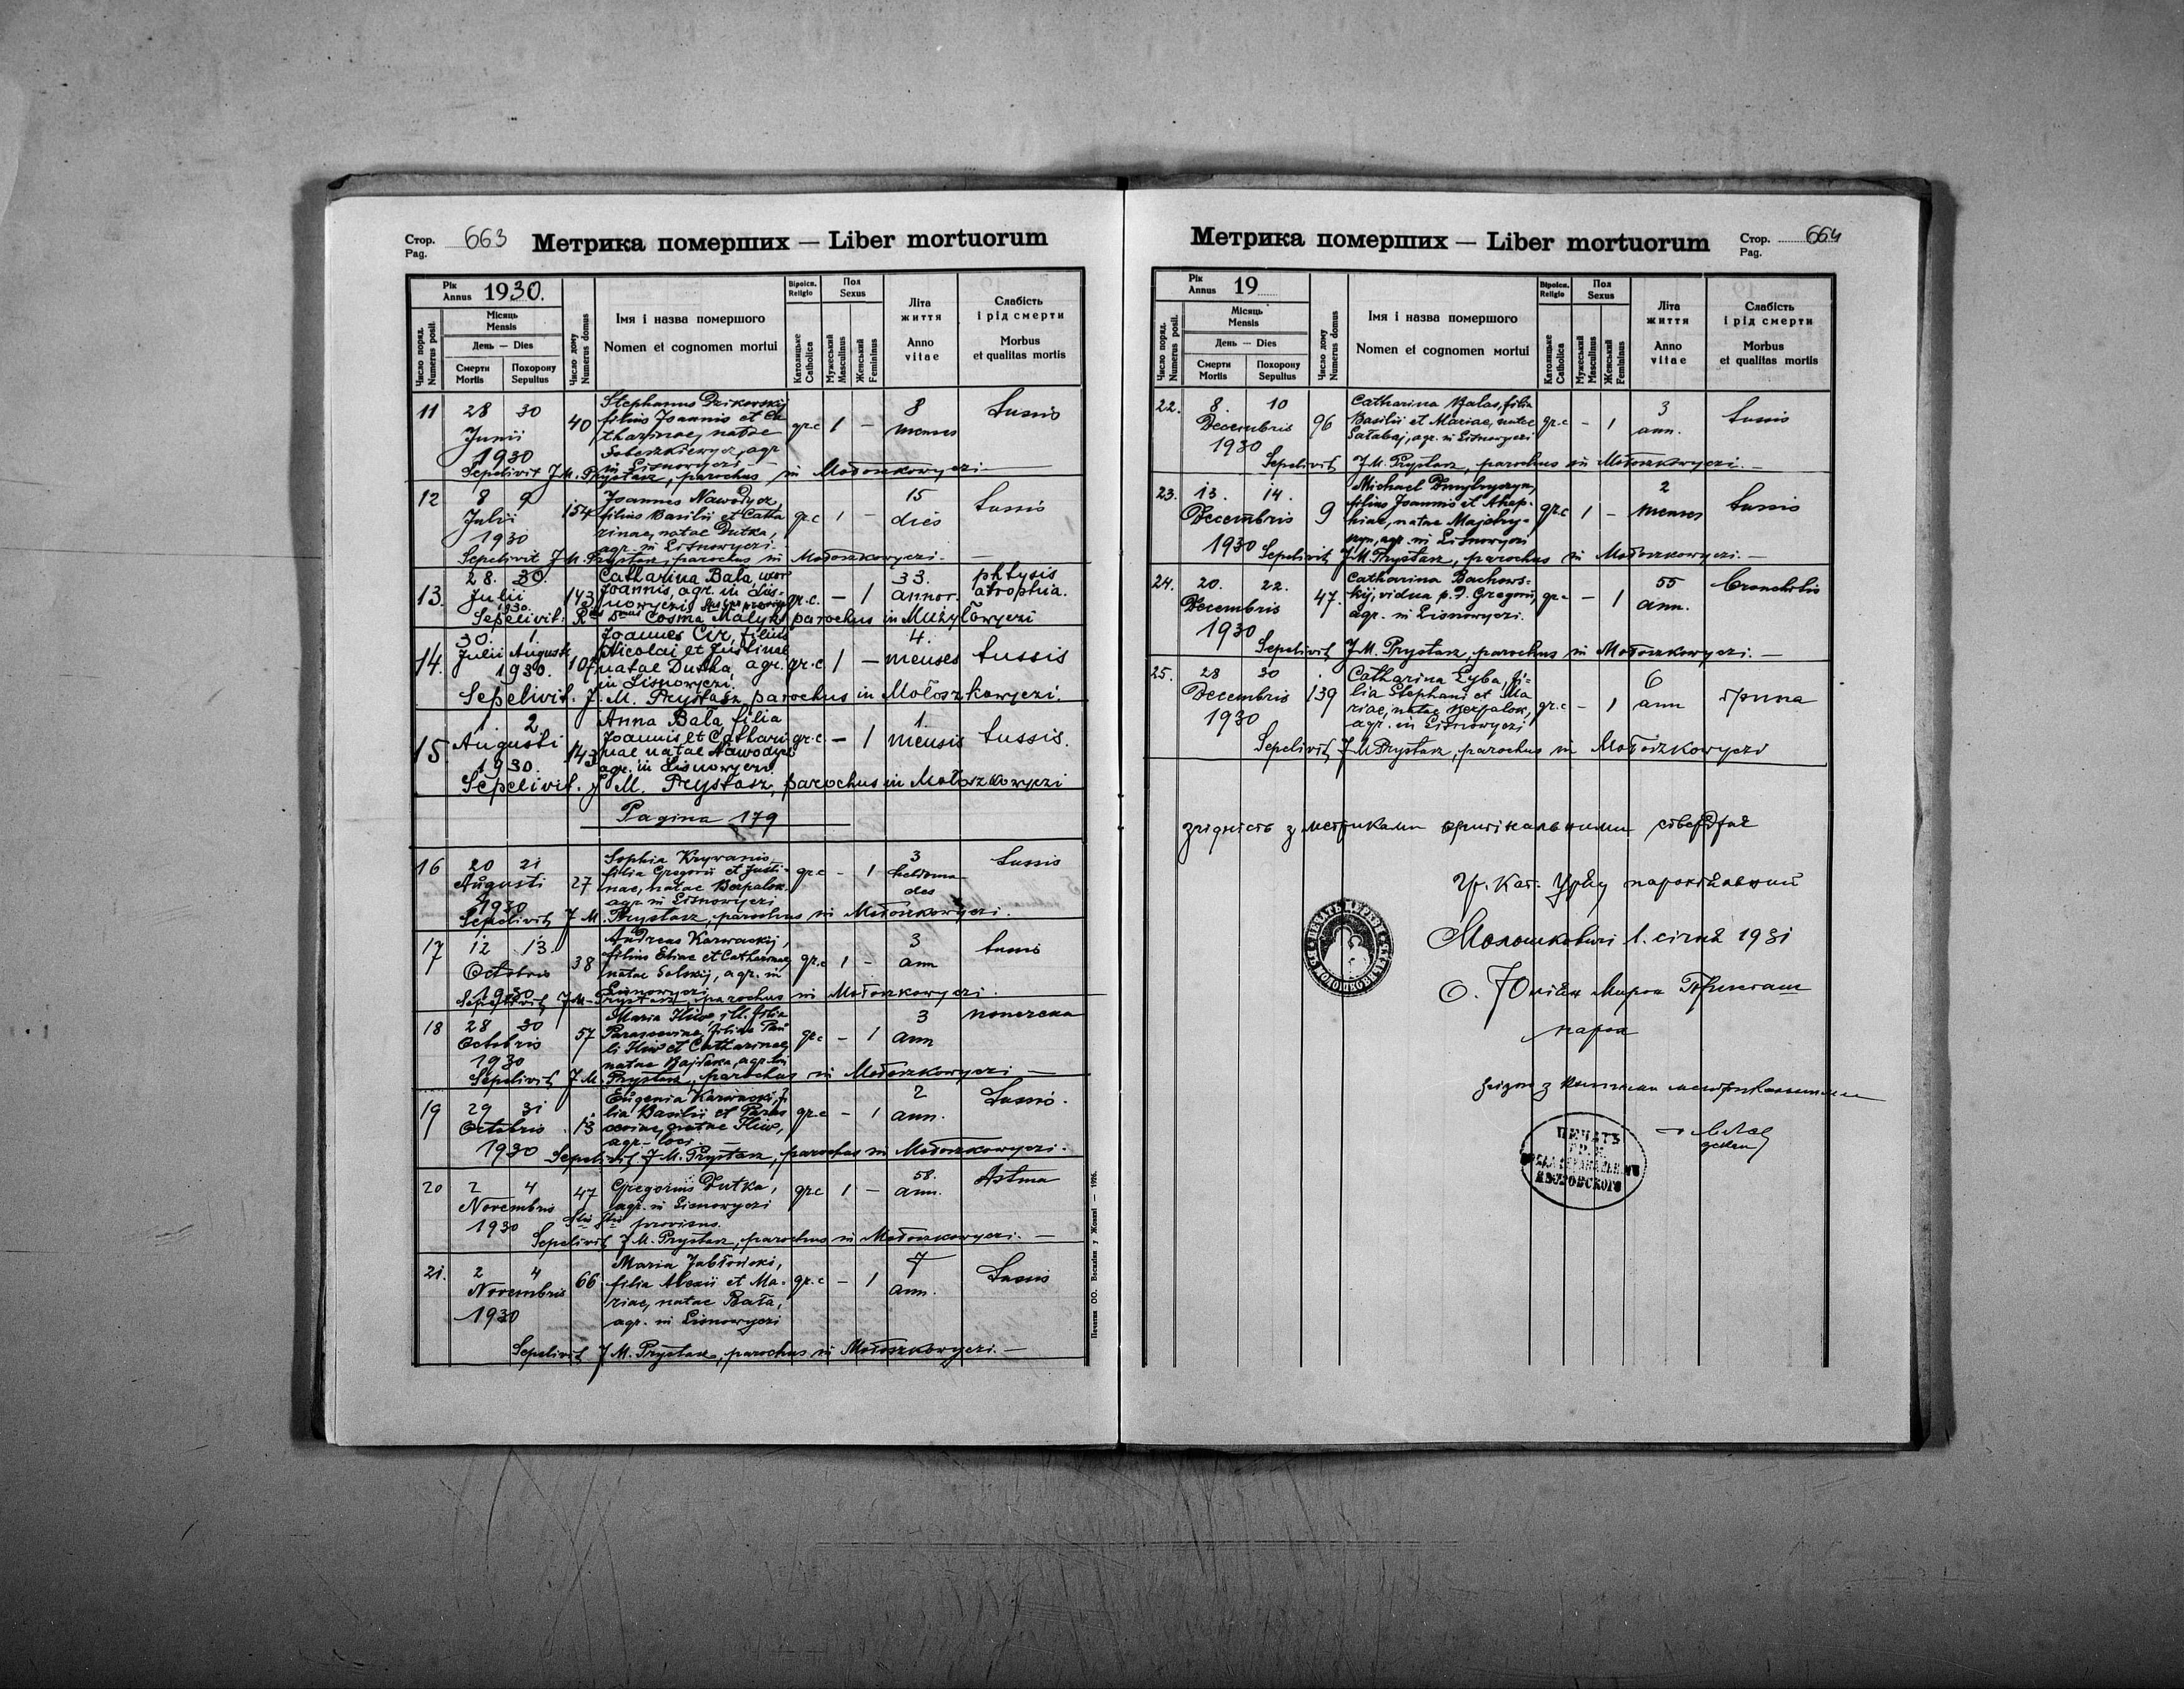 Стор. 663
Pag.
Метрика померших — Liber mortuorum
Рік
Annus 1930.
Число поряд.
Numerus posit.
Місяць
Mensis
День — Dies
Смерти
Mortis
Похорону
Sepultus
Число дому
Numerus domus
Імя і назва помершого
Nomen et cognomen mortui
Віроісп.
Religio
Католицьке
Catholica
Пол
Sexus
Мужеський
Masculinus
Женський
Femininus
Літа
життя
Anno
vitae
Слабість
і рід смерти
Morbus
et qualitas mortis
11 28 30 Junii 1930 40 gr.c 1 — 8 menses tussis
Stephanus Dzikowskij
filius Joannis et Ca
tharinae, natae
Sobeszkiewycz, agr
in Lisnowyczi —
Sepelivit J.M. Prystasz, parochus in Mołoszkowyczi —
12 8 9 Julii 1930 154 gr.c 1 — 15 dies tussis
Joannes Nawodycz,
filius Basilii et Catha
rinae, natae Dutka,
agr. in Lisnowyczi. —
Sepelivit J.M. Prystasz, parochus in Mołoszkowyczi. —
13. 28. 30. Julii 1930. 143 gr.c. — 1 33. annor. phtysis atrophia.
Catharina Bała, uxor
Joannis, agr. in Lis-
nowyczi
Sepelivit: Rdus Dnus Cosma Małyk parochus in Mużyłowyczi
14. 30. Julii 1. Augusti 1930. 107 gr.c 1 — 4. menses tussis
Joannes Cur, filius
Nicolai et Justinae
natae Dutka, agr.
in Lisnowyczi.
Sepelivit. J.M. Prystasz parochus in Mołoszkowyczi.
15. 2 Augusti 1930. 143 gr.c. — 1 1. mensis tussis.
Anna Bała filia
Joannis et Cathari
nae natae Nawodycz
agr. in Lisnowyczi.
Sepelivit. J. M. Prystasz, parochus in Mołoszkowyczi
Pagina 179
16 20 21 Augusti 1930 27 gr.c — 1 3 hebdoma des tussis
Sophia Krywanis
filia Gregorii et Justi-
nae, natae Bezpalok.
agr. in Lisnowyczi
Sepelivit J.M. Prystasz, parochus in Mołoszkowyczi.
17 12 13. Octobris 1930 38 gr.c 1 — 3 ann tussis
Andreas Karwackij,
filius Eliae et Catharinae,
natae Solskij, agr. in
Lisnowyczi
Sepelivit J.M. Prystasz, parochus in Mołoszkowyczi.
18 28 30 Octobris 1930 57 gr.c — 1 3 ann
Maria Hiw, ill. filia
Parascevine, filiae Pau
li Hiw et Catharinae,
natae
Sepelivit J.M. Prystasz, parochus in Mołoszkowyczi —
19 29 31 Octobris 1930 13 gr.c — 1 2 ann. Tussis.
Eugenia Karwacki, fi
lia Basilii et Paras
natae Hiw,
agr. loci. —
Sepelivit J.M. Prystasz, parochus in Mołoszkowyczi.
20 2 4 Novembris 1930 47 gr.c 1 — 58. ann. Astma
Gregorius Dutka,
agr. in Lisnowyczi
provisus.
Sepelivit J.M. Prystasz, parochus in Mołoszkowyczi. —
21. 2 4 Novembris 1930 66 gr.c — 1 7 ann. Tussis
Maria Jabłoński,
filia Alexii et Ma-
riae, natae Bała,
agr. in Lisnowyczi
Sepelivit J.M. Prystasz, parochus in Mołoszkowyczi. —
Печатня ОО. Василіян у Жовкві — 1926.
Метрика померших — Liber mortuorum
Стор. 664
Pag.
Рік
Annus 19
Число поряд.
Numerus posit.
Місяць
Mensis
День — Dies
Смерти
Mortis
Похорону
Sepultus
Число дому
Numerus domus
Імя і назва помершого
Nomen et cognomen mortui
Віроісп.
Religio
Католицьке
Catholica
Пол
Sexus
Мужеський
Masculinus
Женський
Femininus
Літа
життя
Anno
vitae
Слабість
і рід смерти
Morbus
et qualitas mortis
22. 8. 10 Decembris 1930 96 gr.c — 1 3 ann. tussis
Catharina Balas, filia
Basilii et Mariae, natae
Sałabaj, agr. in Lisnowyczi
Sepelivit J.M. Prystasz, parochus in Mołoszkowyczi. —
23. 13. 14. Decembris 1930 9 gr.c 1 — 2 menses tussis
Michael Dmytryszyn,
filius Joannis et Ahap-
hiae, natae
agr. in Lisnowyczi
Sepelivit J.M. Prystasz, parochus in Mołoszkowyczi. —
24. 20. 22. Decembris 1930 47. gr.c — 1 55 ann. bronchitis
Catharina Bachows-
kij, vidua p.d. Gregorii,
agr. in Lisnowyczi.
Sepelivit J.M. Prystasz, parochus in Mołoszkowyczi. —
25. 28 30 Decembris 1930 139 gr.c — 1 6 ann грипа
Catharina Zyba, fi-
lia Stephani et Ma
riae, natae Bezpalok,
agr. in Lisnowyczi
Sepelivit J.M. Prystasz, parochus in Mołoszkowyczi
Згідність з метриками оригінальними стверджає
Гр. Кат. Уряд парохіяльний
Молошковичі 1. січня 1931
О. Юліян Мирон Присташ
парох
Згідно з книгами метрикальними
декан
ПЕЧАТЬ
ЯВОРОВСКОГО